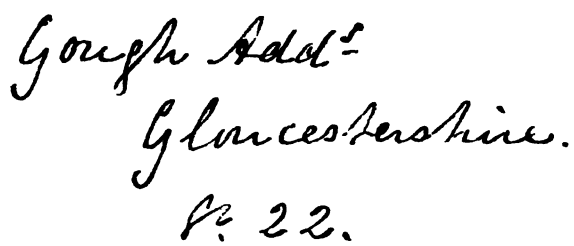 Gough Adds
Gloucestershire.
8o. 22.